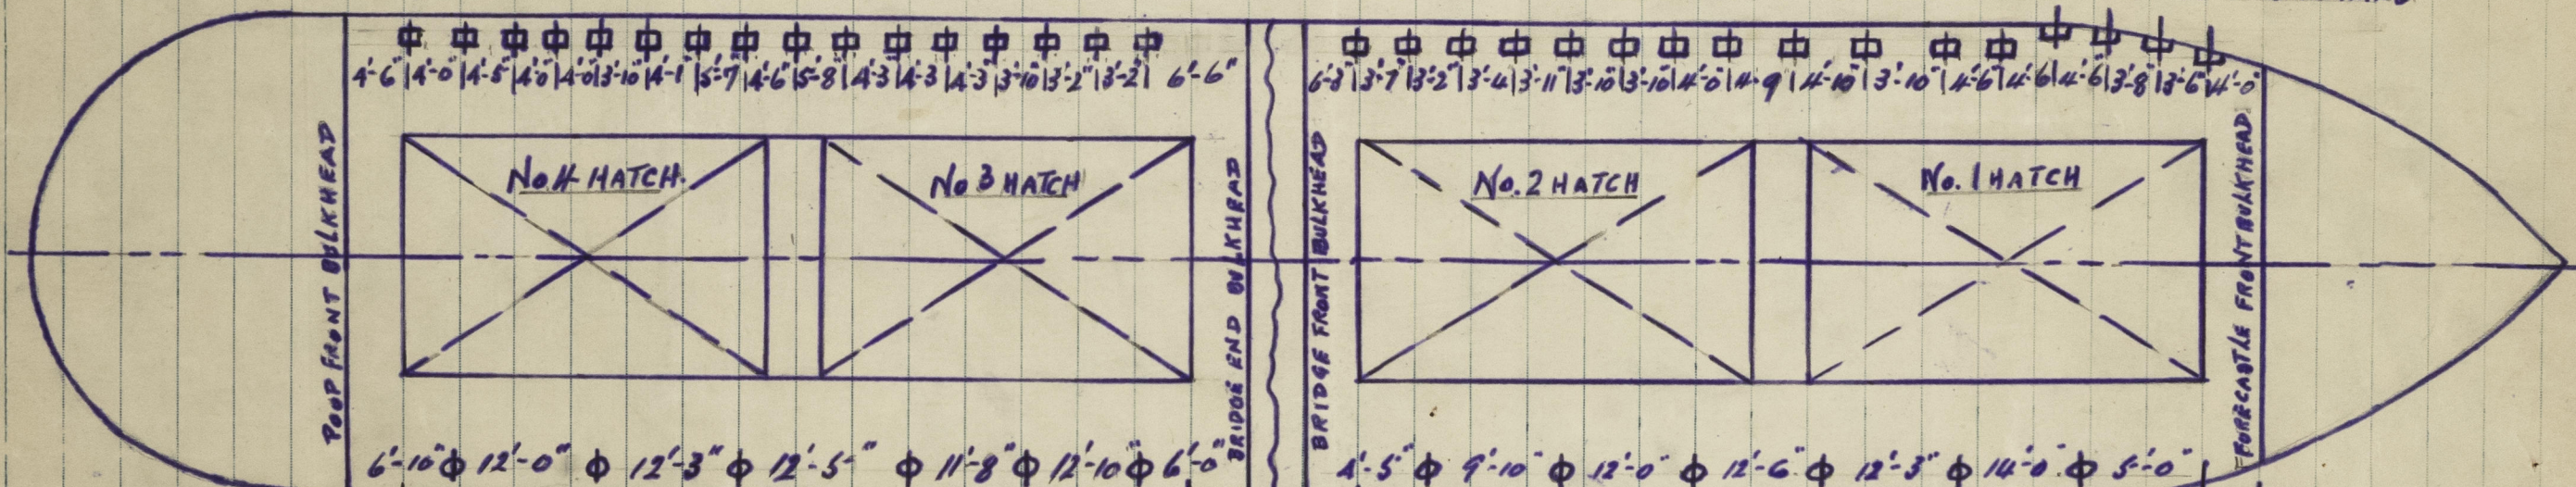 4'-6" | 4'-0" | 4'-5" | 4'-0" | 4'-0" | 3'-10" | 4'-1" | 5'-7" | 4'-6" | 5'-8" | 4'-3" | 4'-3 | 4'-3" | 3'-10" | 3'-2" | 3'-2" | 6'-6"
6'-3" | 3'-7" | 3'-2" | 3'-4" | 3'-11" | 3'-10" | 3'-10" | 4'-0" | 4'-9 | 4'-10" | 3'-10" | 4'-6" | 4'-6" | 4'-6" | 3'-8" | 3'-6" | 4'-0"
POOP FRONT BULKHEAD
No 4 HATCH.
No 3 HATCH
BRIDGE END BULKHEAD
BRIDGE FRONT BULKHEAD
No. 2 HATCH
No. 1 HATCH
FORECASTLE FRONT BULKHEAD
6'-10" 12'-0" 12'-3" 12'-5-" 11'-8" 12'-10" 6'-0"
4'-5" 9'-10" 12'-0" 12'-6" 12'-3" 14'-0" 5'-0"